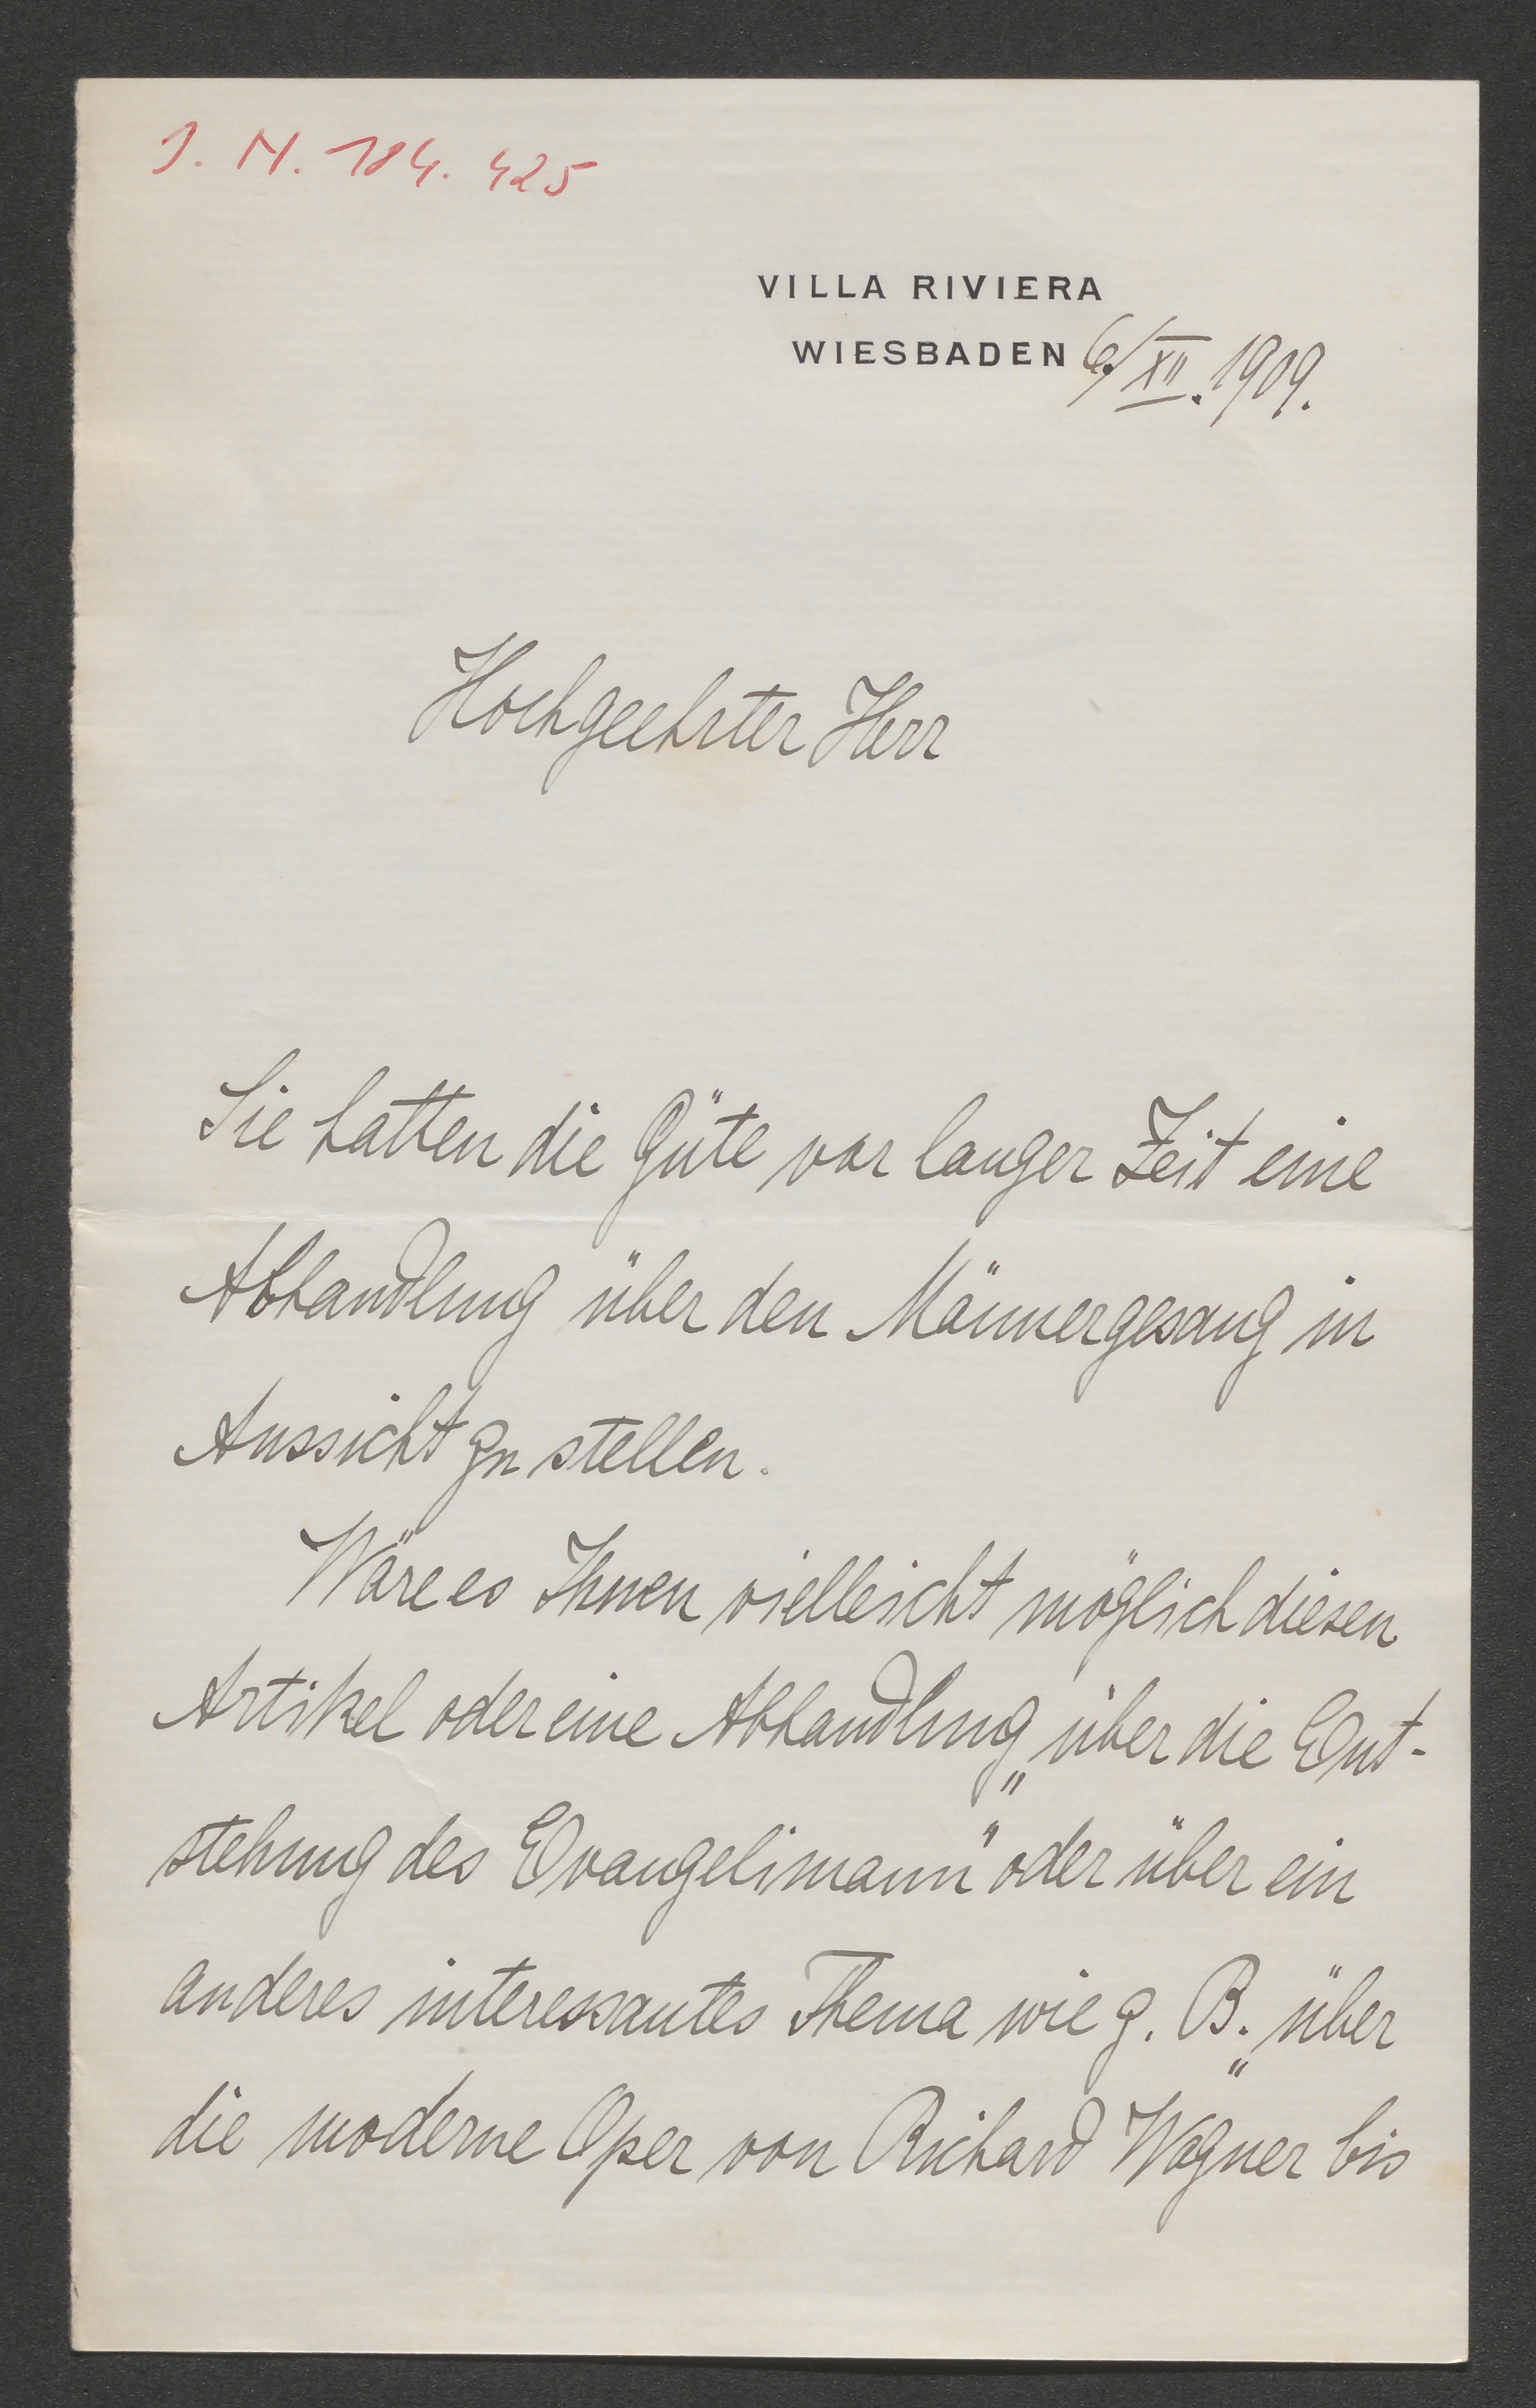 J. N. 184. 425
VILLA RIVIERA
WIESBADEN 6./XII. 1909.
Hochgeehrter Herr
Sie hatten die Güte vor langer Zeit eine
Abhandlung über den Männergesang in
Aussicht zu stellen.
Wäre es Ihnen vielleicht möglich diesen
Artikel oder eine Abhandlung „über die Ent-
stehung des Evangelimann" oder über ein
anderes interessantes Thema wie z. B. „über
die moderne Oper von Richard Wagner bis